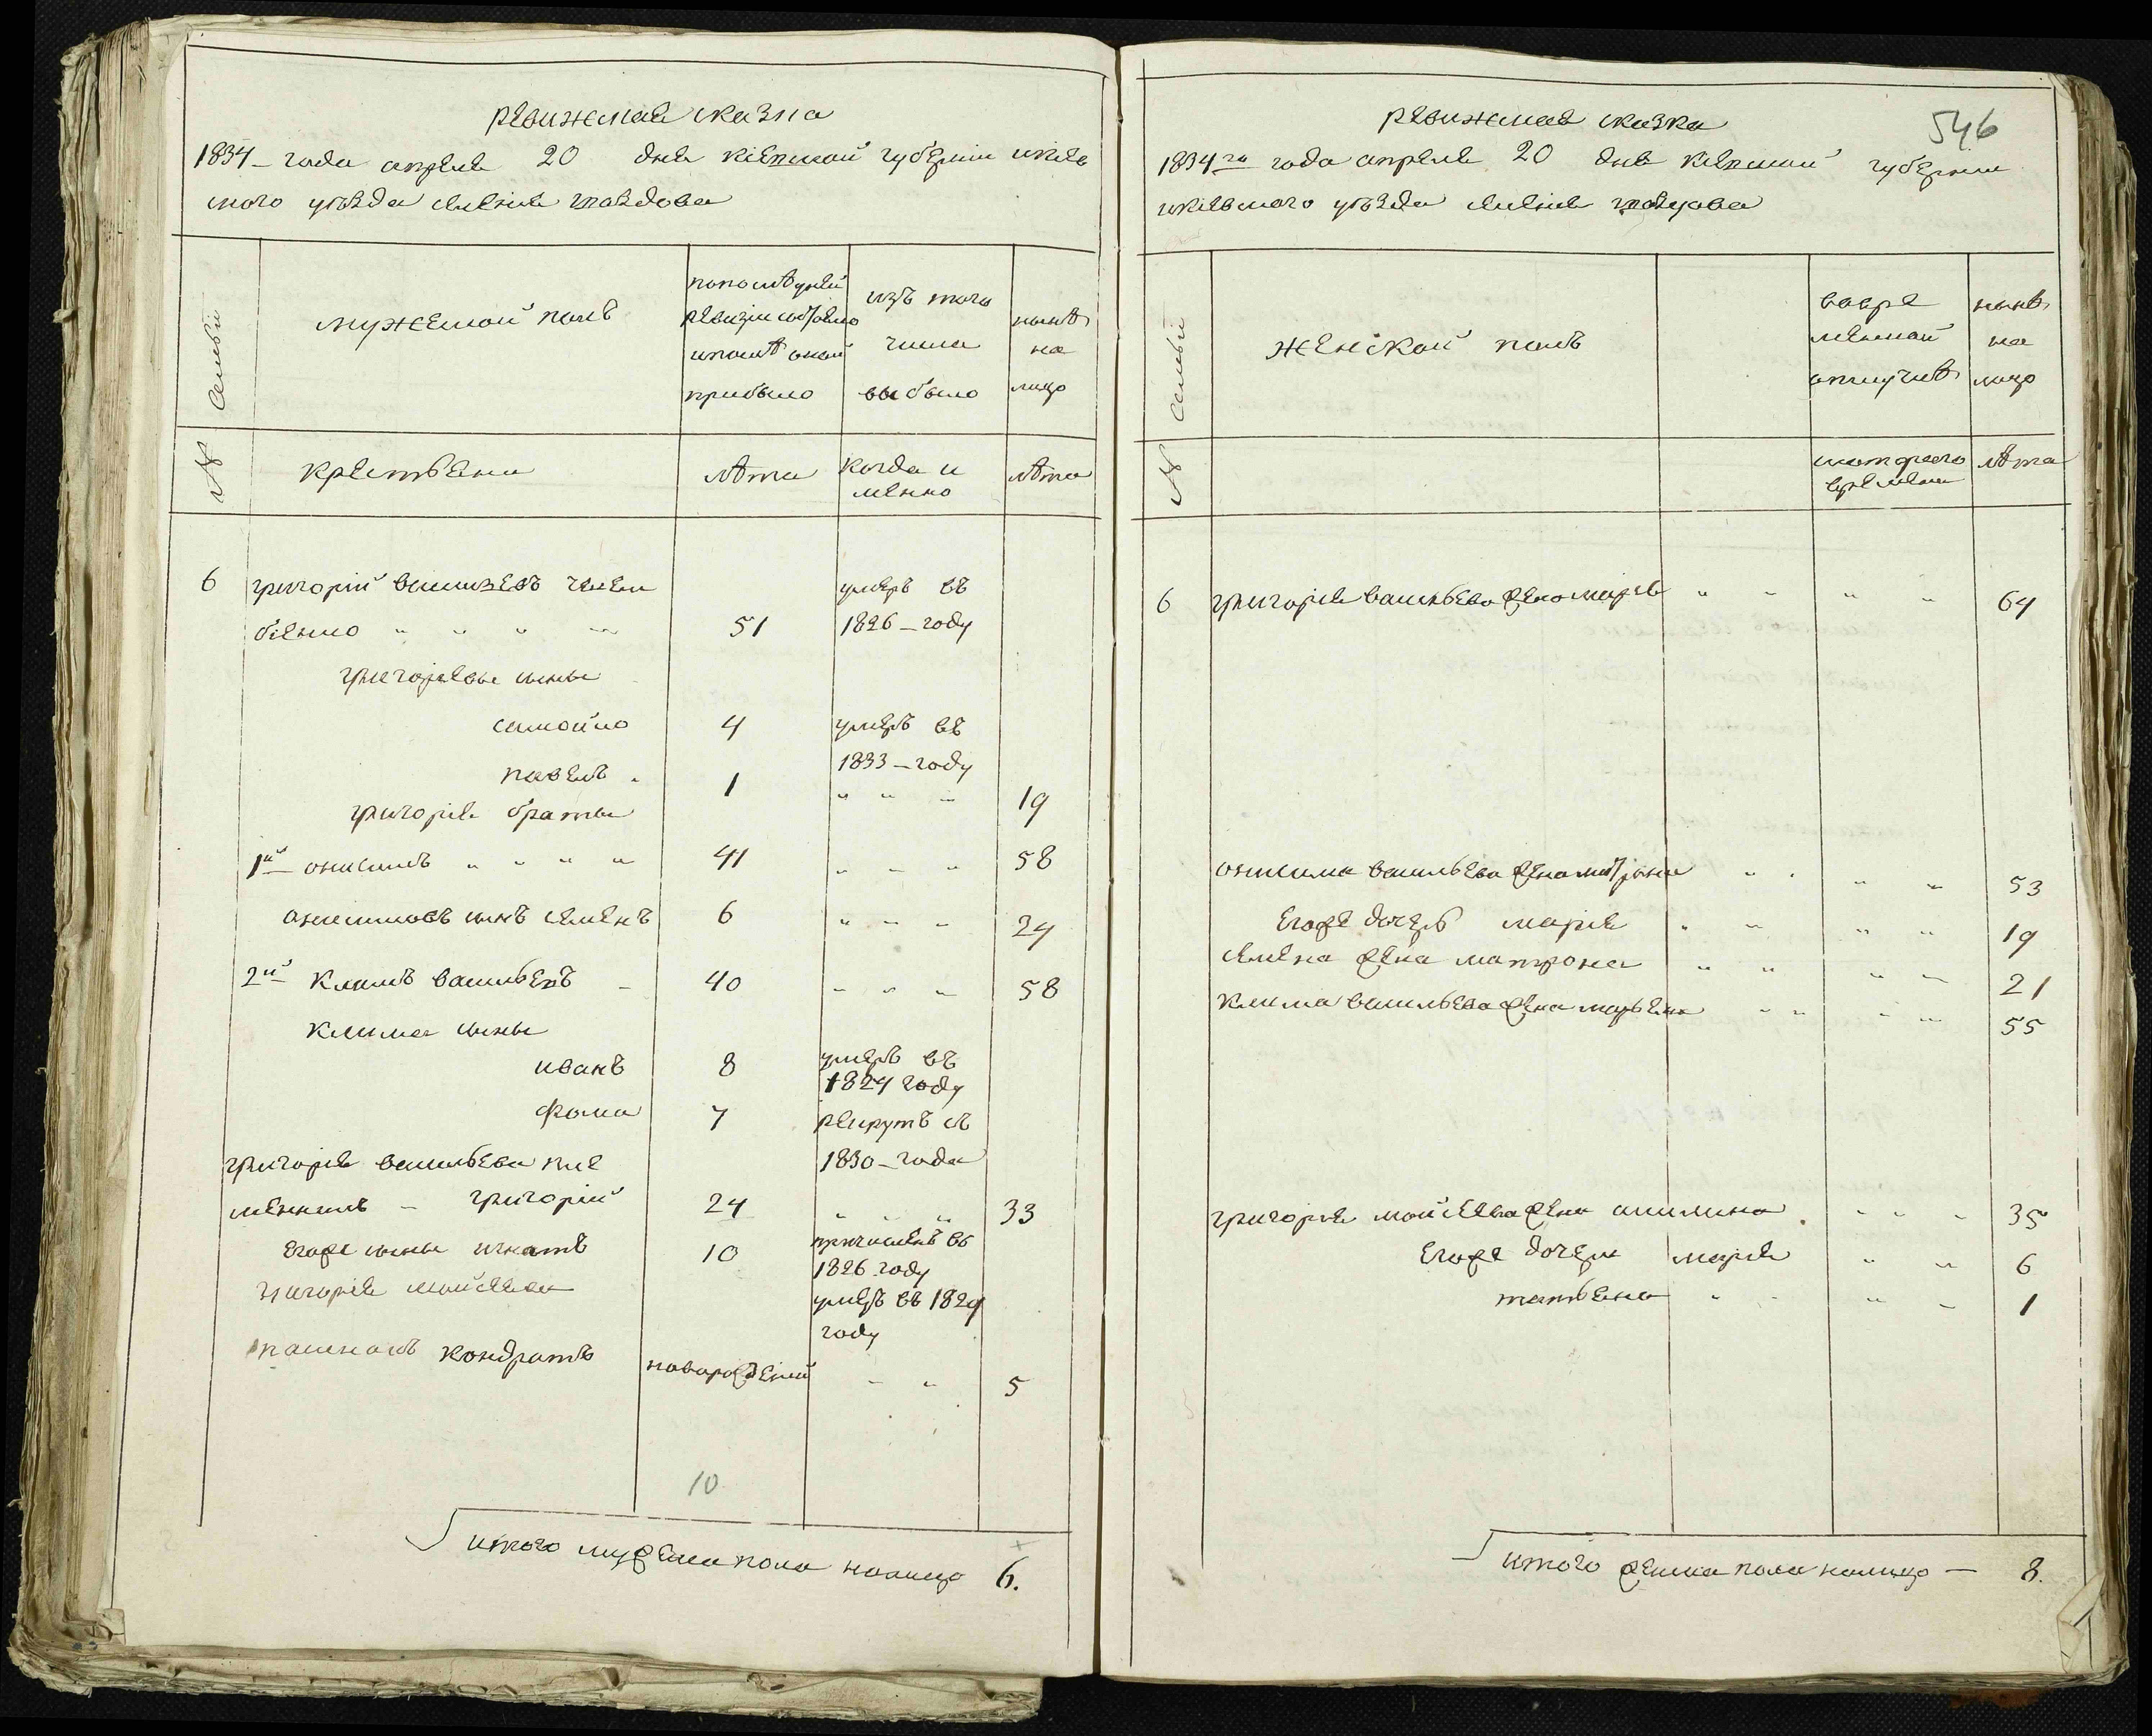 ревижская сказка
1834 – года апреля 20 дня киевской губернии и киев
ского уѣзда селения
мужеской полъ
по последней
ревизии состояло
и после оной
прибыло
изъ того
числа
выбыло
нынѣ
на
лицо
№ Семьи
крестьяни
лѣта
когда и
менно
лѣта
6 григорій васильевъ
51
умеръ въ
1826 – году
григорьевы сыны
самойло 4 умеръ въ
1833 – году
павелъ 1 " " " 19
григорія братья
1й онисимъ " " " " 41 " " " 58
онисимовъ сынъ семенъ 6 " " " 24
2й климъ васильевъ – 40 " " " 58
клима сыны
иванъ 8 умеръ въ
1824 году
фома 7 рекрутъ съ
1830 – года
григорія васильева пле
менникъ – григорій 24 " " " 33
егоже сыны игнатъ 10 въ
1826 году
григорія мойсеева
умеръ въ 1829
году
кондратъ новорожденый " " 5
10
итого мужеска пола налицо 6.
546
ревижская сказка
1834го года апреля 20 дня киевской губернии
и киевского уѣзда селения
№ Семьи
женской полъ
вовре
менной
отлучкѣ
нынѣ
на
лицо
с которого
времени
лѣта
6 григория васильева жена марья " " " " 64
онисима васильева жена мотрона " " " " 53
Егоже дочерь мария " " " " 19
семена жена матрона " " " " 21
клима васильева жена марьяна " " " " 55
григория мойсеева жена акилина " " " 35
Егоже дочери мария " " 6
татьяна " " " " 1
итого женска пола налицо – 8.